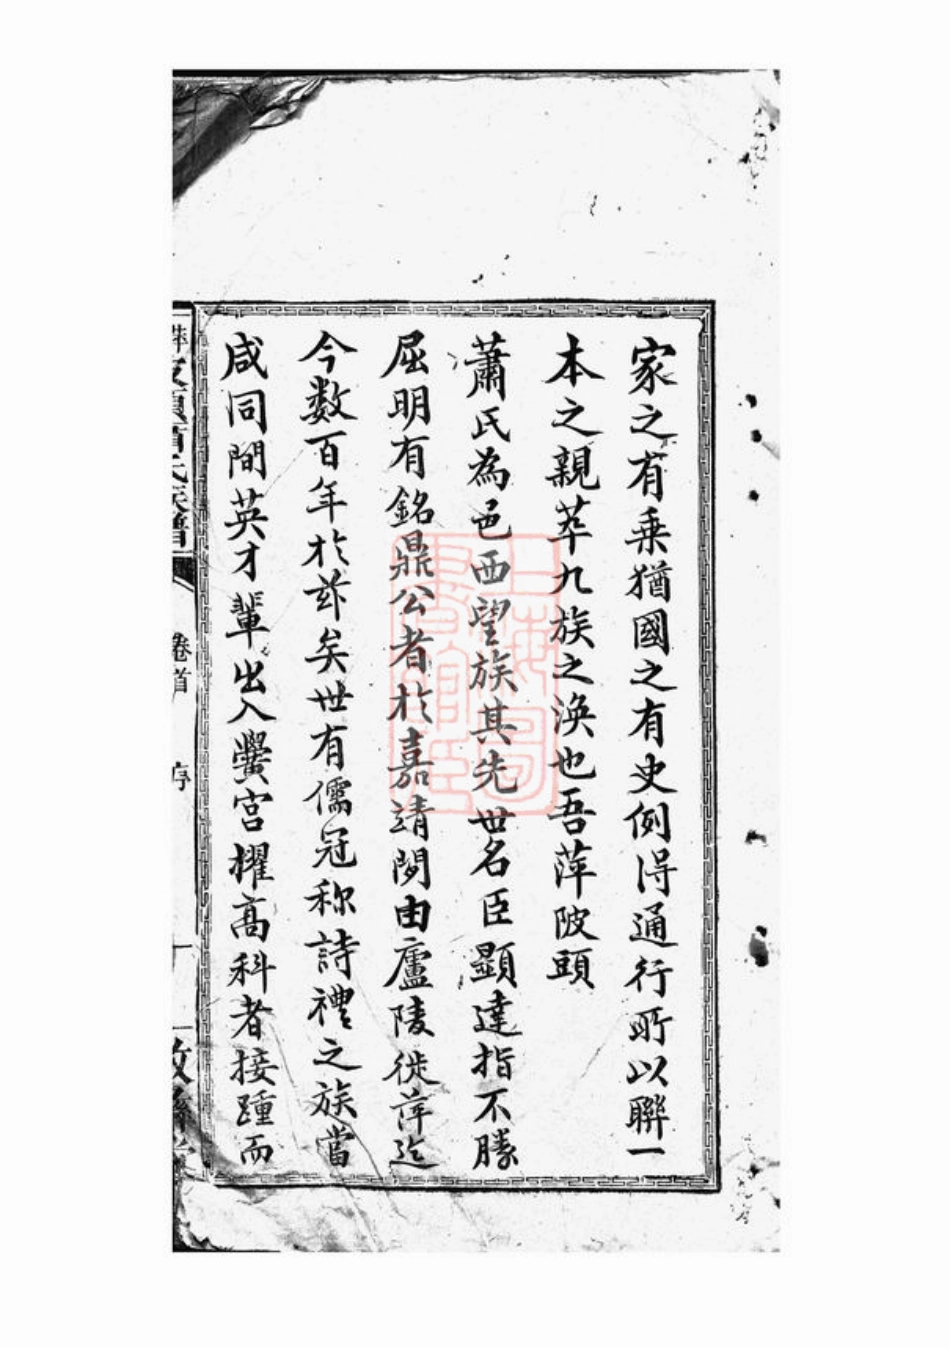 家之有乗猶國之有史例得通行所以聯一
本之親萃九族之渙也吾萍陂頭
蕭氏為邑西望族其先世名臣顯達指不勝
屈明有銘鼎公者於嘉靖間由廬陵徙萍迄
今數百年於茲矣世有儒冠称詩禮之族當
咸同間英才輩出入黌宮擢高科者接踵而
卷首
序